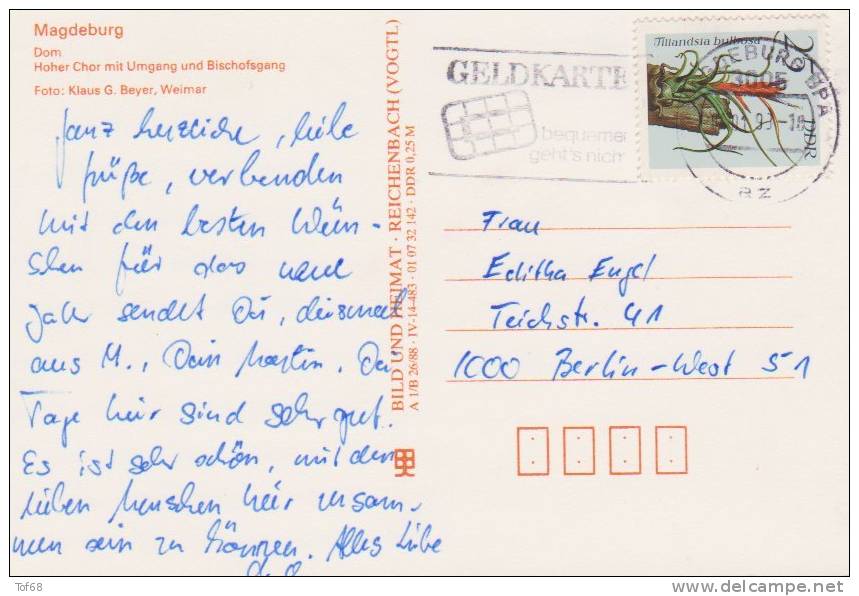 Magdeburg
Dom
Hoher Chor mit Umgang und Bischofsgang
Foto: Klaus G. Beyer, Weimar
Ganz herzliche, liebe
Grüße, verbunden
mit den besten Wün-
schen für das neue
Jahr sendet Dir, diesmal
aus M., Dein Martin. Die
Tage hier sind sehr gut.
Es ist sehr schön, mit den
lieben Menschen hier zusam-
men sein zu können. Alles Liebe
BILD UND HEIMAT · REICHENBACH (VOGTL)
A 1/B 26/88 · IV-14-483 · 01 07 32 142 · DDR 0,25 M
GELDKARTE
bequemer
geht's nicht
Tillandsia bulbosa
20
DDR
MAGDEBURG BPA
3005
az
Frau
Editha Engel
Teichstr. 41
1000 Berlin-West 51
Tof68
delcampe.net